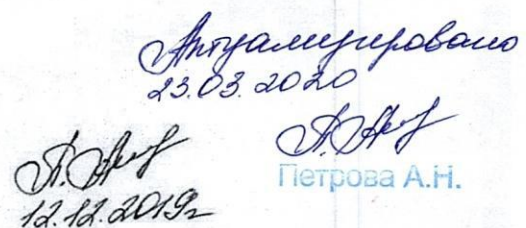 Актуализировано
23.03.2020
Петрова А.Н.
12.12.2019г